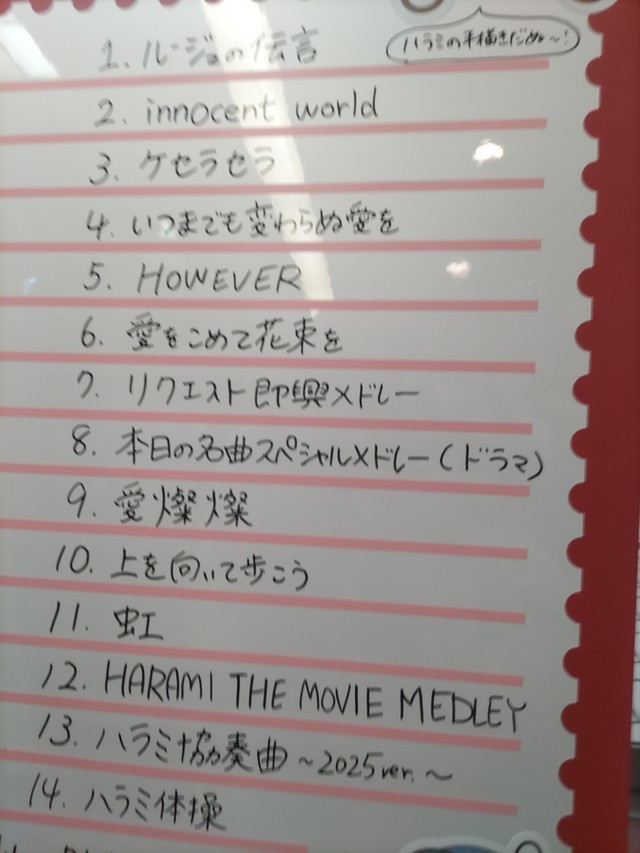 ハラミの手描きだぬ〜!
1. ルージュの伝言
2. innocent world
3. ケセラセラ
4. いつまでも変わらぬ愛を
5. HOWEVER
6. 愛をこめて花束を
7. リクエスト即興メドレー
8. 本日の名曲スペシャルメドレー(ドラマ)
9. 愛燦燦
10. 上を向いて歩こう
11. 虹
12. HARAMI THE MOVIE MEDLEY
13. ハラミ協奏曲 ~2025ver.~
14. ハラミ体操